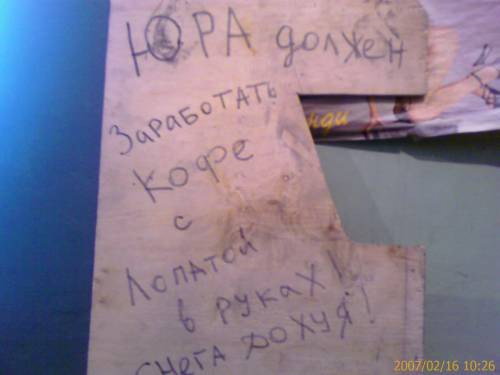 ЮРА должен
Заработать
кофе
с
лопатой
в руках!
снега дохуя!
нди
2007/02/16 10:26